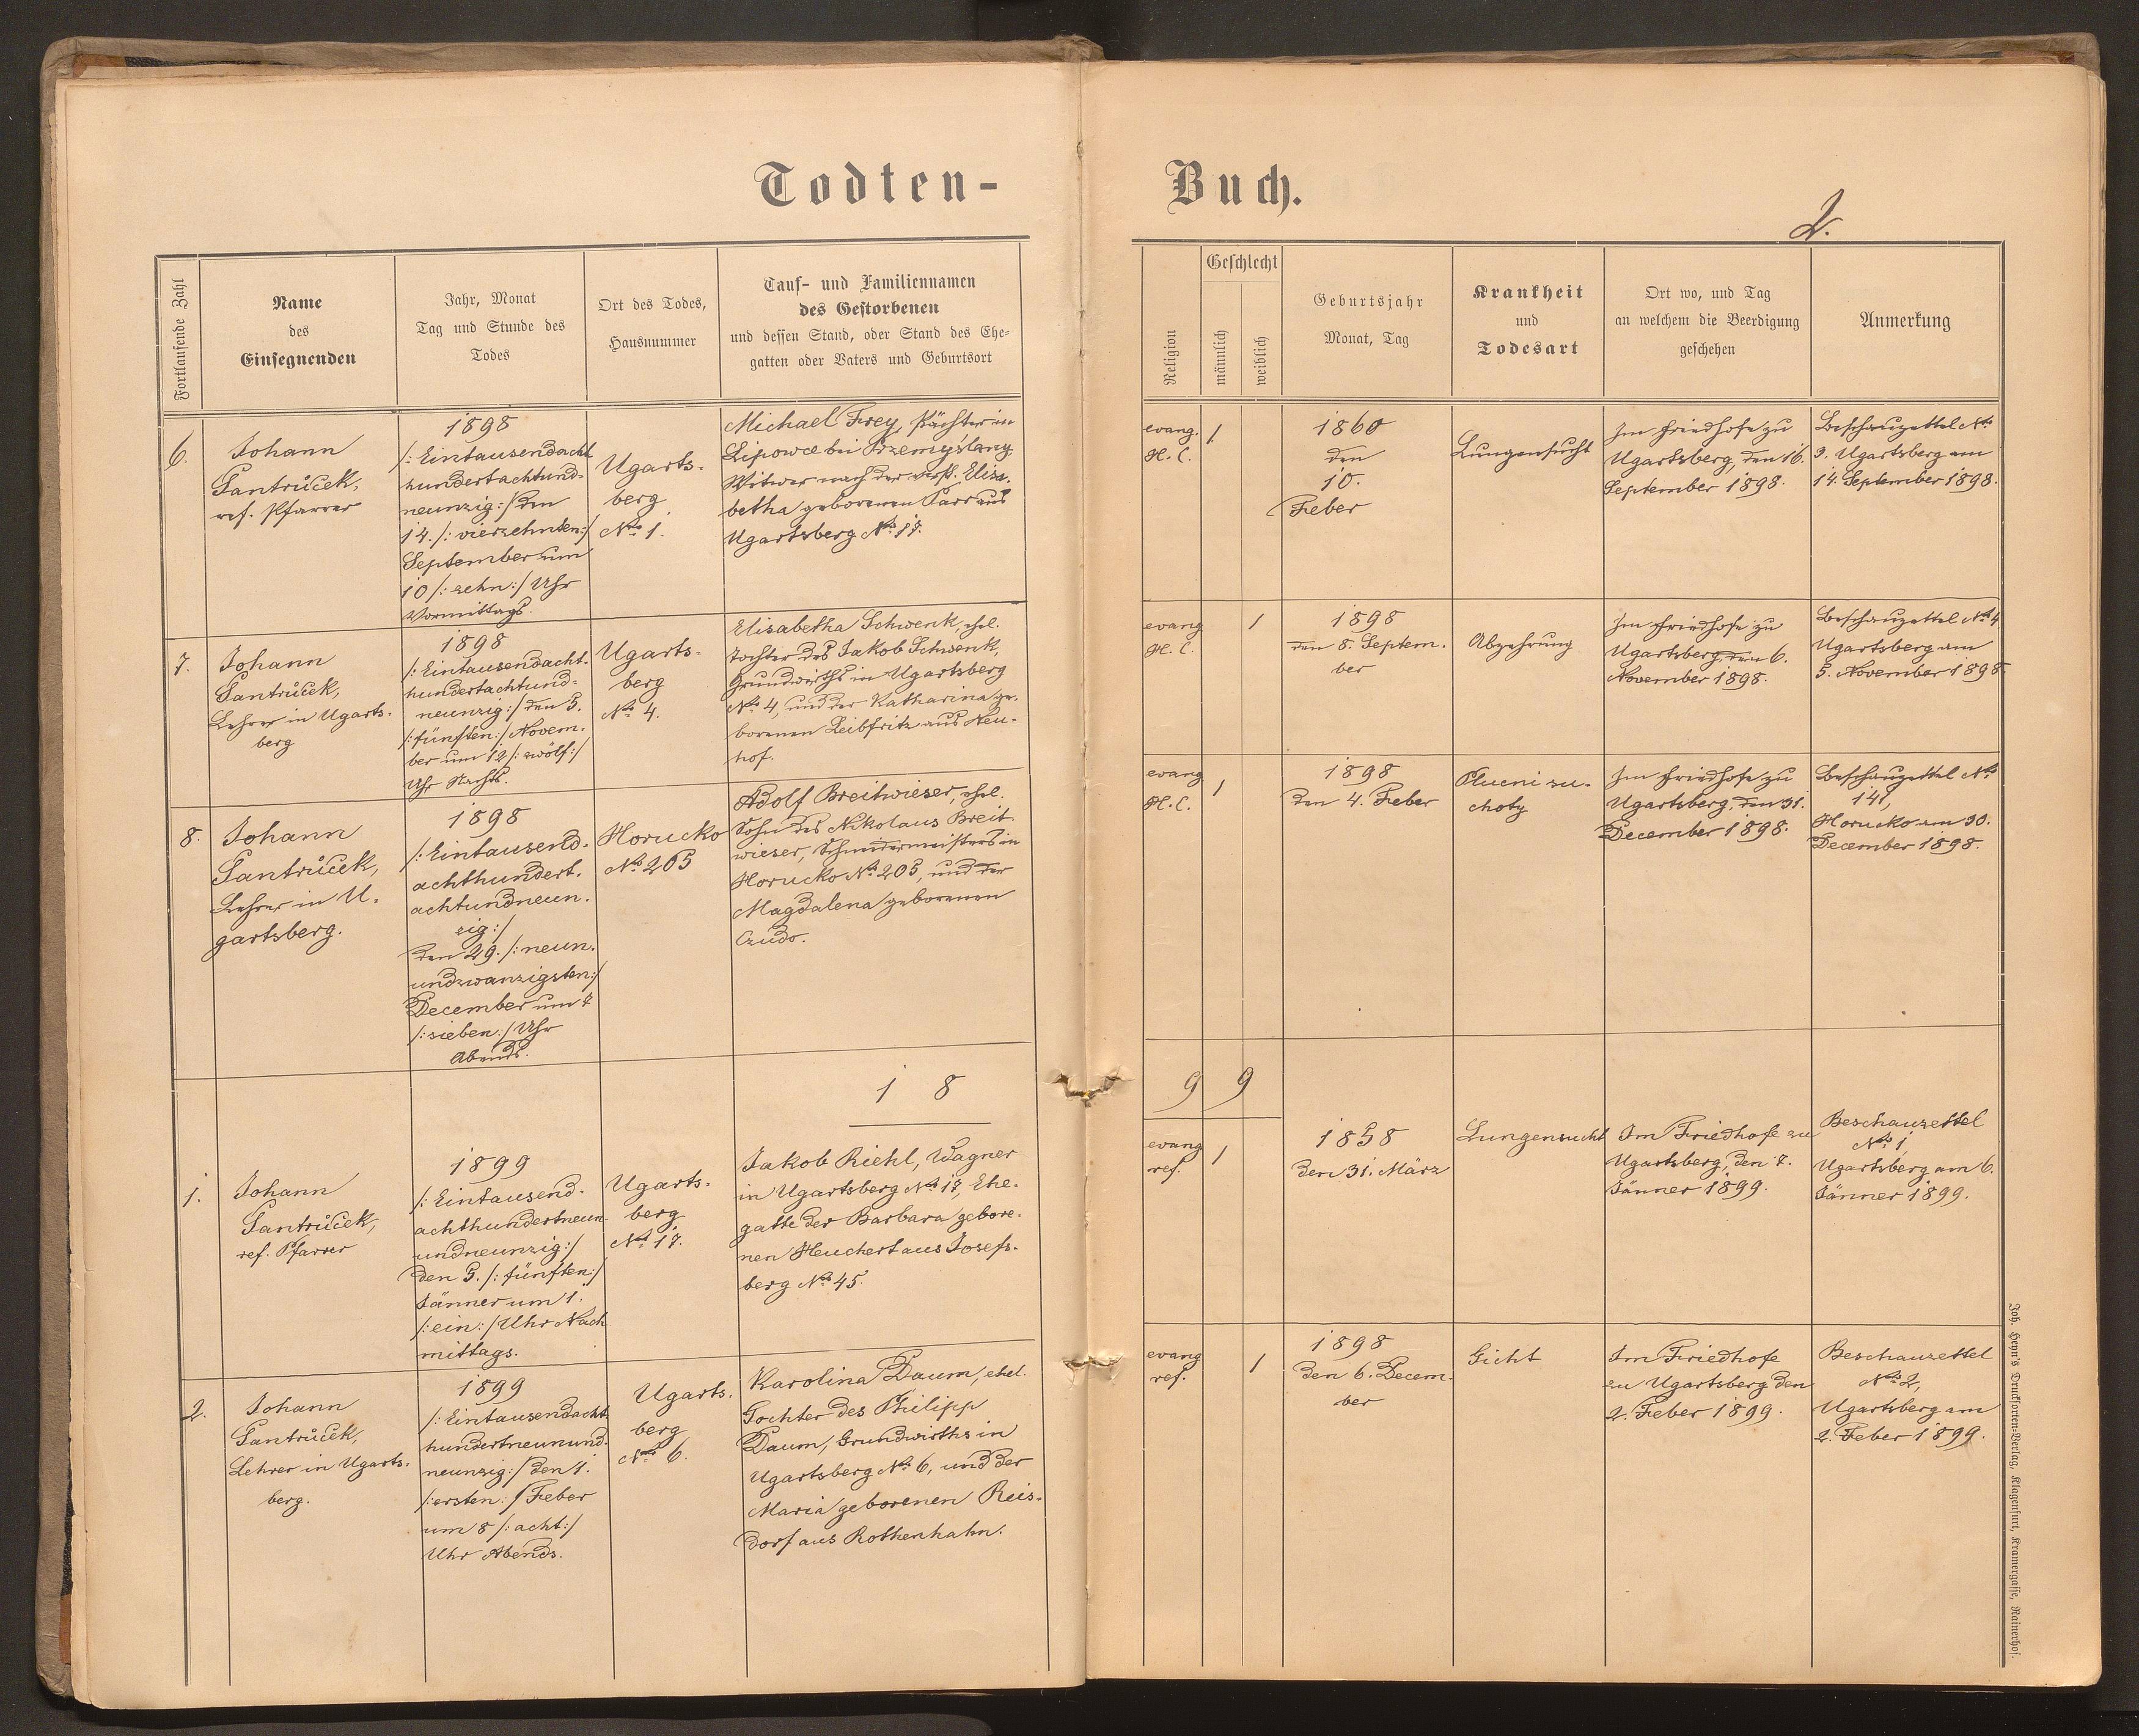 Todten-
Buch.
2.
Fortlaufende Zahl
Name
des
Einsegnenden
Jahr, Monat
Tag und Stunde des
Todes
Ort des Todes,
Hausnummer
Tauf- und Familiennamen
des Gestorbenen
und dessen Stand, oder Stand des Ehe-
gatten oder Vaters und Geburtsort
Religion
Geschlecht
männlich
weiblich
Geburtsjahr
Monat, Tag
Krankheit
und
Todesart
Ort wo, und Tag
an welchem die Beerdigung
geschehen
Anmerkung
6.
Johann
Santrůček,
ref. Pfarrer
1898
/: Eintausendacht
hundertachtund-
neunzig :/ den
14. /: vierzehnten :/
September um
10 /: zehn :/ Uhr
Vormittags.
Ugarts-
berg
No 1.
Michael Frey, Pächter in
Lipowce bei Przemyślany
Witwer nach der verst. Elisa-
betha geborenen Parr aus
Ugartsberg No 17.
evang.
H. C.
1
1860
den
10.
Feber
Lungensucht
Im Friedhofe zu
Ugartsberg, den 16.
September 1898.
Beschauzettel No
3. Ugartsberg am
14. September 1898.
7.
Johann
Santrůček,
Lehrer in Ugarts-
berg
1898
/: Eintausendacht-
hundertachtund-
neunzig :/ den 5.
/: fünften :/ Novem-
ber um 12 /: zwölf :/
Uhr Nachts.
Ugarts-
berg
No 4.
Elisabetha Schwenk, ehel.
Tochter des Jakob Schwenk,
Grundwirths in Ugartsberg
No 4, und der Katharina ge-
borenen Leibfritz aus Neu-
hof.
evang
H. C.
1
1898
den 8. Septem-
ber
Abzehrung
Im Friedhofe zu
Ugartsberg, den 6.
November 1898.
Beschauzettel No 4
Ugartsberg am
5. November 1898.
8.
Johann
Santrůček,
Lehrer in U-
gartsberg.
1898
/: Eintausend-
achthundert-
achtundneun-
zig :/
den 29. /: neun-
undzwanzigsten :/
December um 7
/: sieben :/ Uhr
Abends.
Horucko
No 205
Adolf Breitwieser, ehel.
Sohn des Nikolaus Breit
wieser, Schneidermeisters in
Horucko No 205, und der
Magdalena geborenen
Czudo.
evang
H. C.
1
1898
den 4. Feber
Plucni su-
choty
Im Friedhofe zu
Ugartsberg, den 31.
December 1898.
Beschauzettel No
141,
Horucko am 30.
December 1898.
1 8
9 9
1.
Johann
Santrůček,
ref. Pfarrer
1899
/: Eintausend-
achthundertneun-
undneunzig :/
den 5. /: fünften :/
Jänner um 1.
/: ein :/ Uhr Nach
mittags.
Ugarts-
berg
No 17.
Jakob Riehl, Wagner
in Ugartsberg No 17, Ehe-
gatte der Barbara gebore-
nen Heuchert aus Josefs-
berg No 45.
evang
ref.
1
1858
den 31. März
Lungensucht
Im Friedhofe zu
Ugartsberg, den 7.
Jänner 1899.
Beschauzettel
No 1,
Ugartsberg am 6.
Jänner 1899.
2.
Johann
Santrůček,
Lehrer in Ugarts-
berg.
1899
/: Eintausendacht
hundertneunund-
neunzig :/ den 1.
/: ersten :/ Feber
um 8 /: acht :/
Uhr Abends.
Ugarts-
berg
No 6.
Karolina Daum, ehel.
Tochter des Philipp
Daum, Grundwirths in
Ugartsberg No 6, und der
Maria geborenen Reis-
dorf aus Rothenhahn.
evang
ref.
1
1898
den 6. Decem-
ber
Gicht
Im Friedhofe
zu Ugartsberg den
2. Feber 1899.
Beschauzettel
No 2,
Ugartsberg am
2. Feber 1899.
Joh. Heyn's Drucksorten-Verlag, Klagenfurt, Kramergasse, Rainerhof.